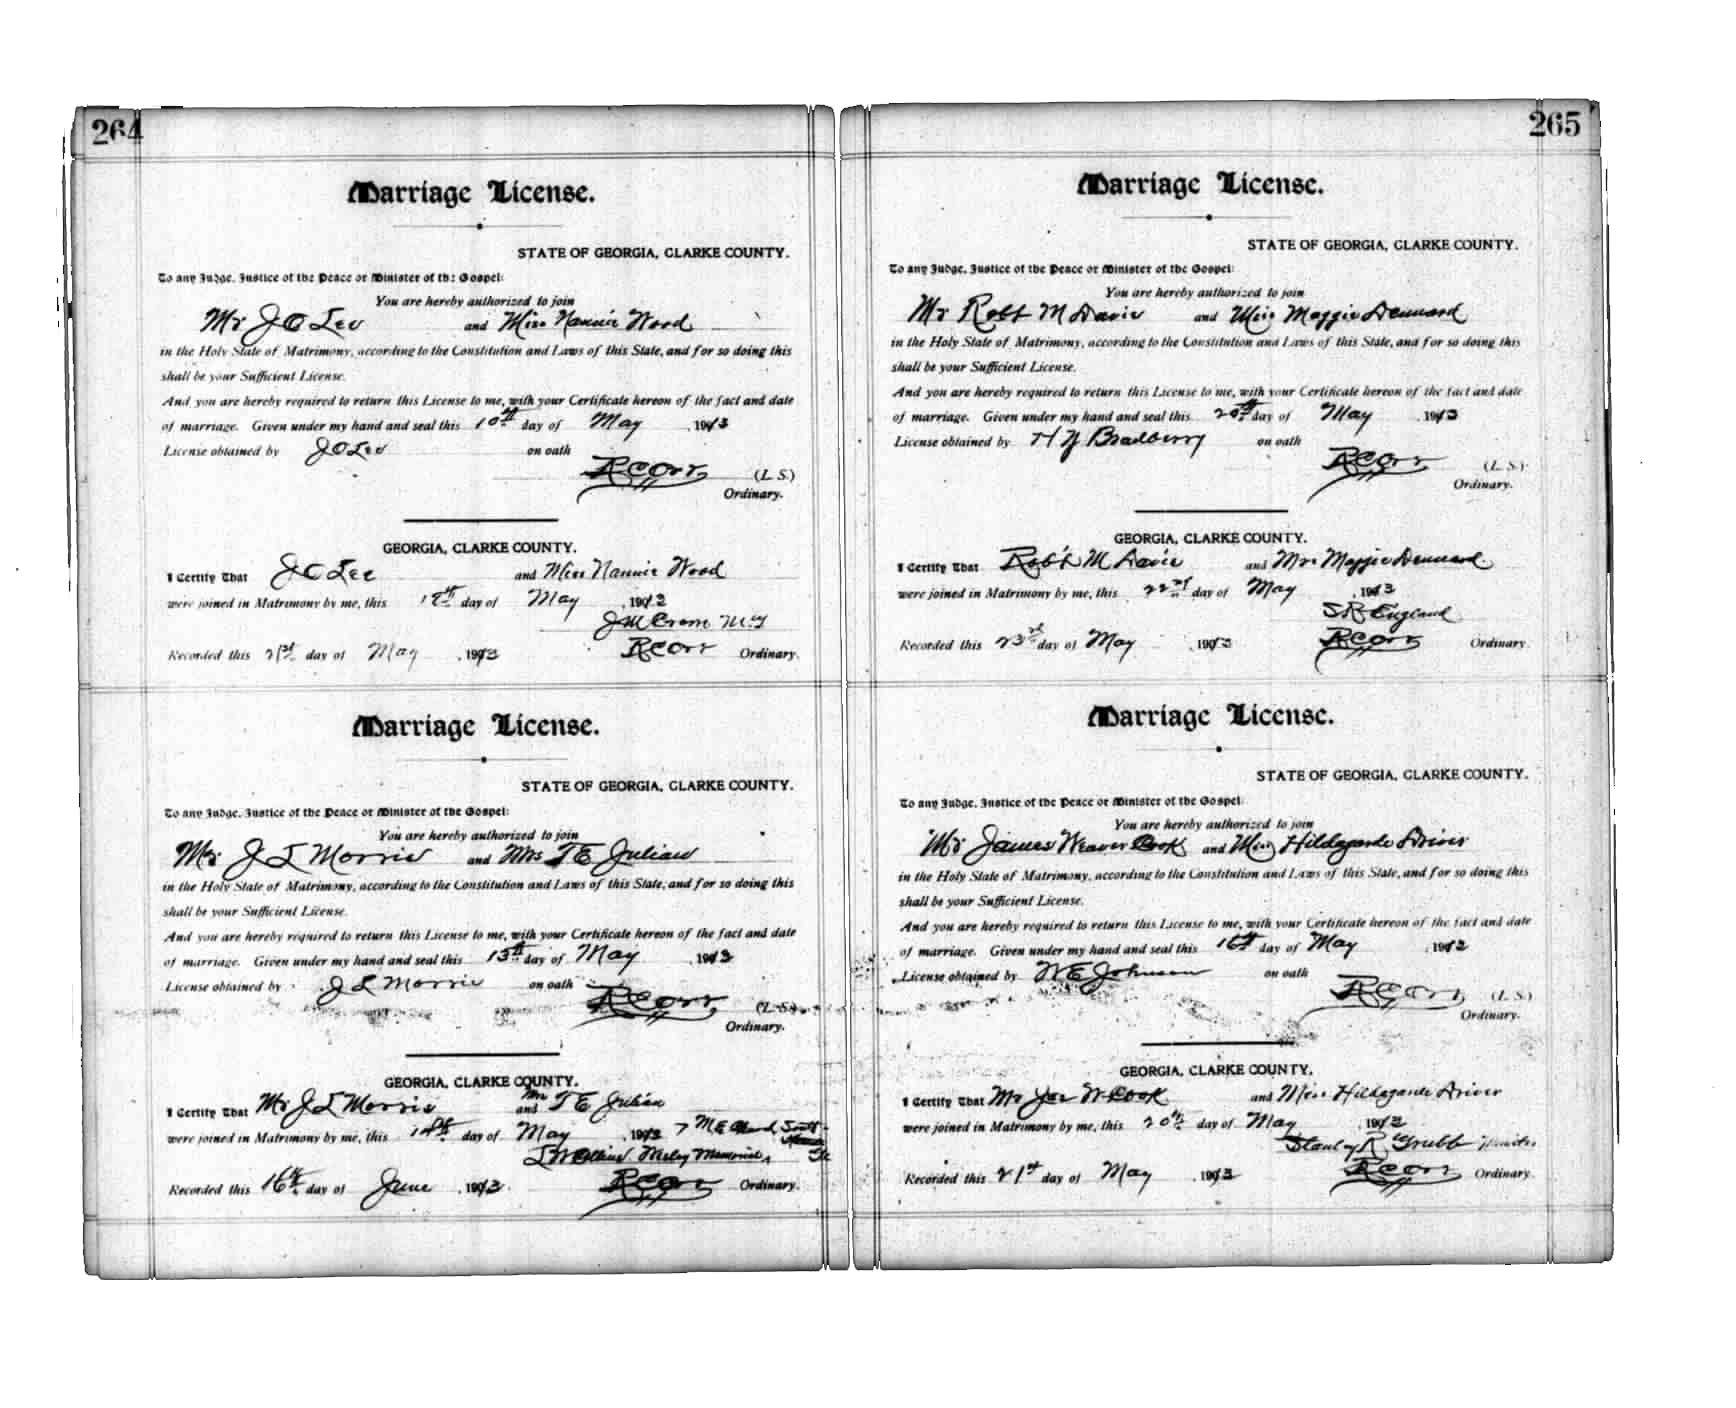 264
Marriage License.
STATE OF GEORGIA, CLARKE COUNTY.
To any Judge, Justice of the Peace or Minister of the Gospel:
You are hereby authorized to join
Mr J C Lee and Miss Nannie Wood
in the Holy State of Matrimony, according to the Constitution and Laws of this State, and for so doing this
shall be your Sufficient License.
And you are hereby required to return this License to me, with your Certificate hereon of the fact and date
of marriage. Given under my hand and seal this 10th day of May, 1913
License obtained by J C Lee on oath
R C Orr (L. S.)
Ordinary.
GEORGIA, CLARKE COUNTY.
I Certify That J C Lee and Miss Nannie Wood
were joined in Matrimony by me, this 18th day of May, 1913
J M Crane M.G
Recorded this 21st day of May, 1913 R C Orr Ordinary.
Marriage License.
STATE OF GEORGIA, CLARKE COUNTY.
To any Judge, Justice of the Peace or Minister of the Gospel:
You are hereby authorized to join
Mr J L Morris and Mrs T E Julian
in the Holy State of Matrimony, according to the Constitution and Laws of this State, and for so doing this
shall be your Sufficient License.
And you are hereby required to return this License to me, with your Certificate hereon of the fact and date
of marriage. Given under my hand and seal this 13th day of May, 1913
License obtained by J L Morris on oath
R C Orr (L. S.)
Ordinary.
GEORGIA, CLARKE COUNTY.
I Certify That Mr J L Morris and Mrs T E Julian
were joined in Matrimony by me, this 14th day of May, 1913 M E South
Wesley Memorial
Recorded this 16th day of June, 1913 R C Orr Ordinary.
265
Marriage License.
STATE OF GEORGIA, CLARKE COUNTY.
To any Judge, Justice of the Peace or Minister of the Gospel:
You are hereby authorized to join
Mr Robt M Davis and Miss Maggie Dennard
in the Holy State of Matrimony, according to the Constitution and Laws of this State, and for so doing this
shall be your Sufficient License.
And you are hereby required to return this License to me, with your Certificate hereon of the fact and date
of marriage. Given under my hand and seal this 20th day of May, 1913
License obtained by H Y Bradberry on oath
R C Orr (L. S.)
Ordinary.
GEORGIA, CLARKE COUNTY.
I Certify That Rob't M Davis and Mrs Maggie Dennard
were joined in Matrimony by me, this 22nd day of May, 1913
S R England
Recorded this 23rd day of May, 1913 R C Orr Ordinary.
Marriage License.
STATE OF GEORGIA, CLARKE COUNTY.
To any Judge, Justice of the Peace or Minister of the Gospel:
You are hereby authorized to join
Mr James Weaver Cook and Miss Hildegarde Driver
in the Holy State of Matrimony, according to the Constitution and Laws of this State, and for so doing this
shall be your Sufficient License.
And you are hereby required to return this License to me, with your Certificate hereon of the fact and date
of marriage. Given under my hand and seal this 16th day of May, 1913
License obtained by W E Johnson on oath
R C Orr (L. S.)
Ordinary.
GEORGIA, CLARKE COUNTY.
I Certify That Mr Jas W Cook and Miss Hildegarde Driver
were joined in Matrimony by me, this 20th day of May, 1913
Stanley R Grubb Minister
Recorded this 21st day of May, 1913 R C Orr Ordinary.